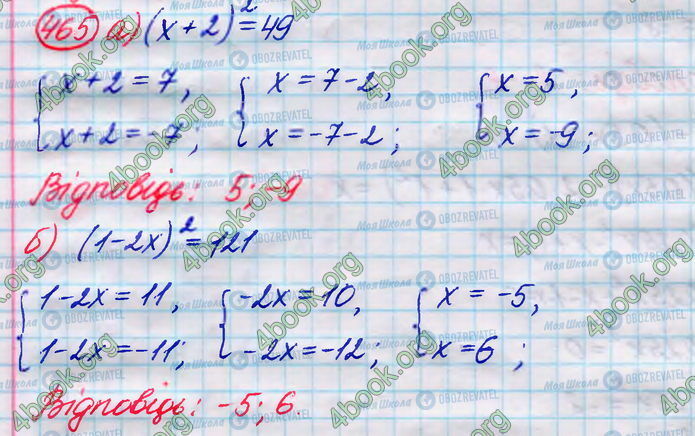 465 а) (x+2)²=49
{x+2=7, {x=7-2, {x=5,
x+2=-7; x=-7-2; x=-9;
Відповідь: 5; -9
б) (1-2x)²=121
{1-2x=11, {-2x=10, {x=-5,
1-2x=-11; -2x=-12; x=6;
Відповідь: -5; 6.
4book.org
Моя Школа OBOZREVATEL